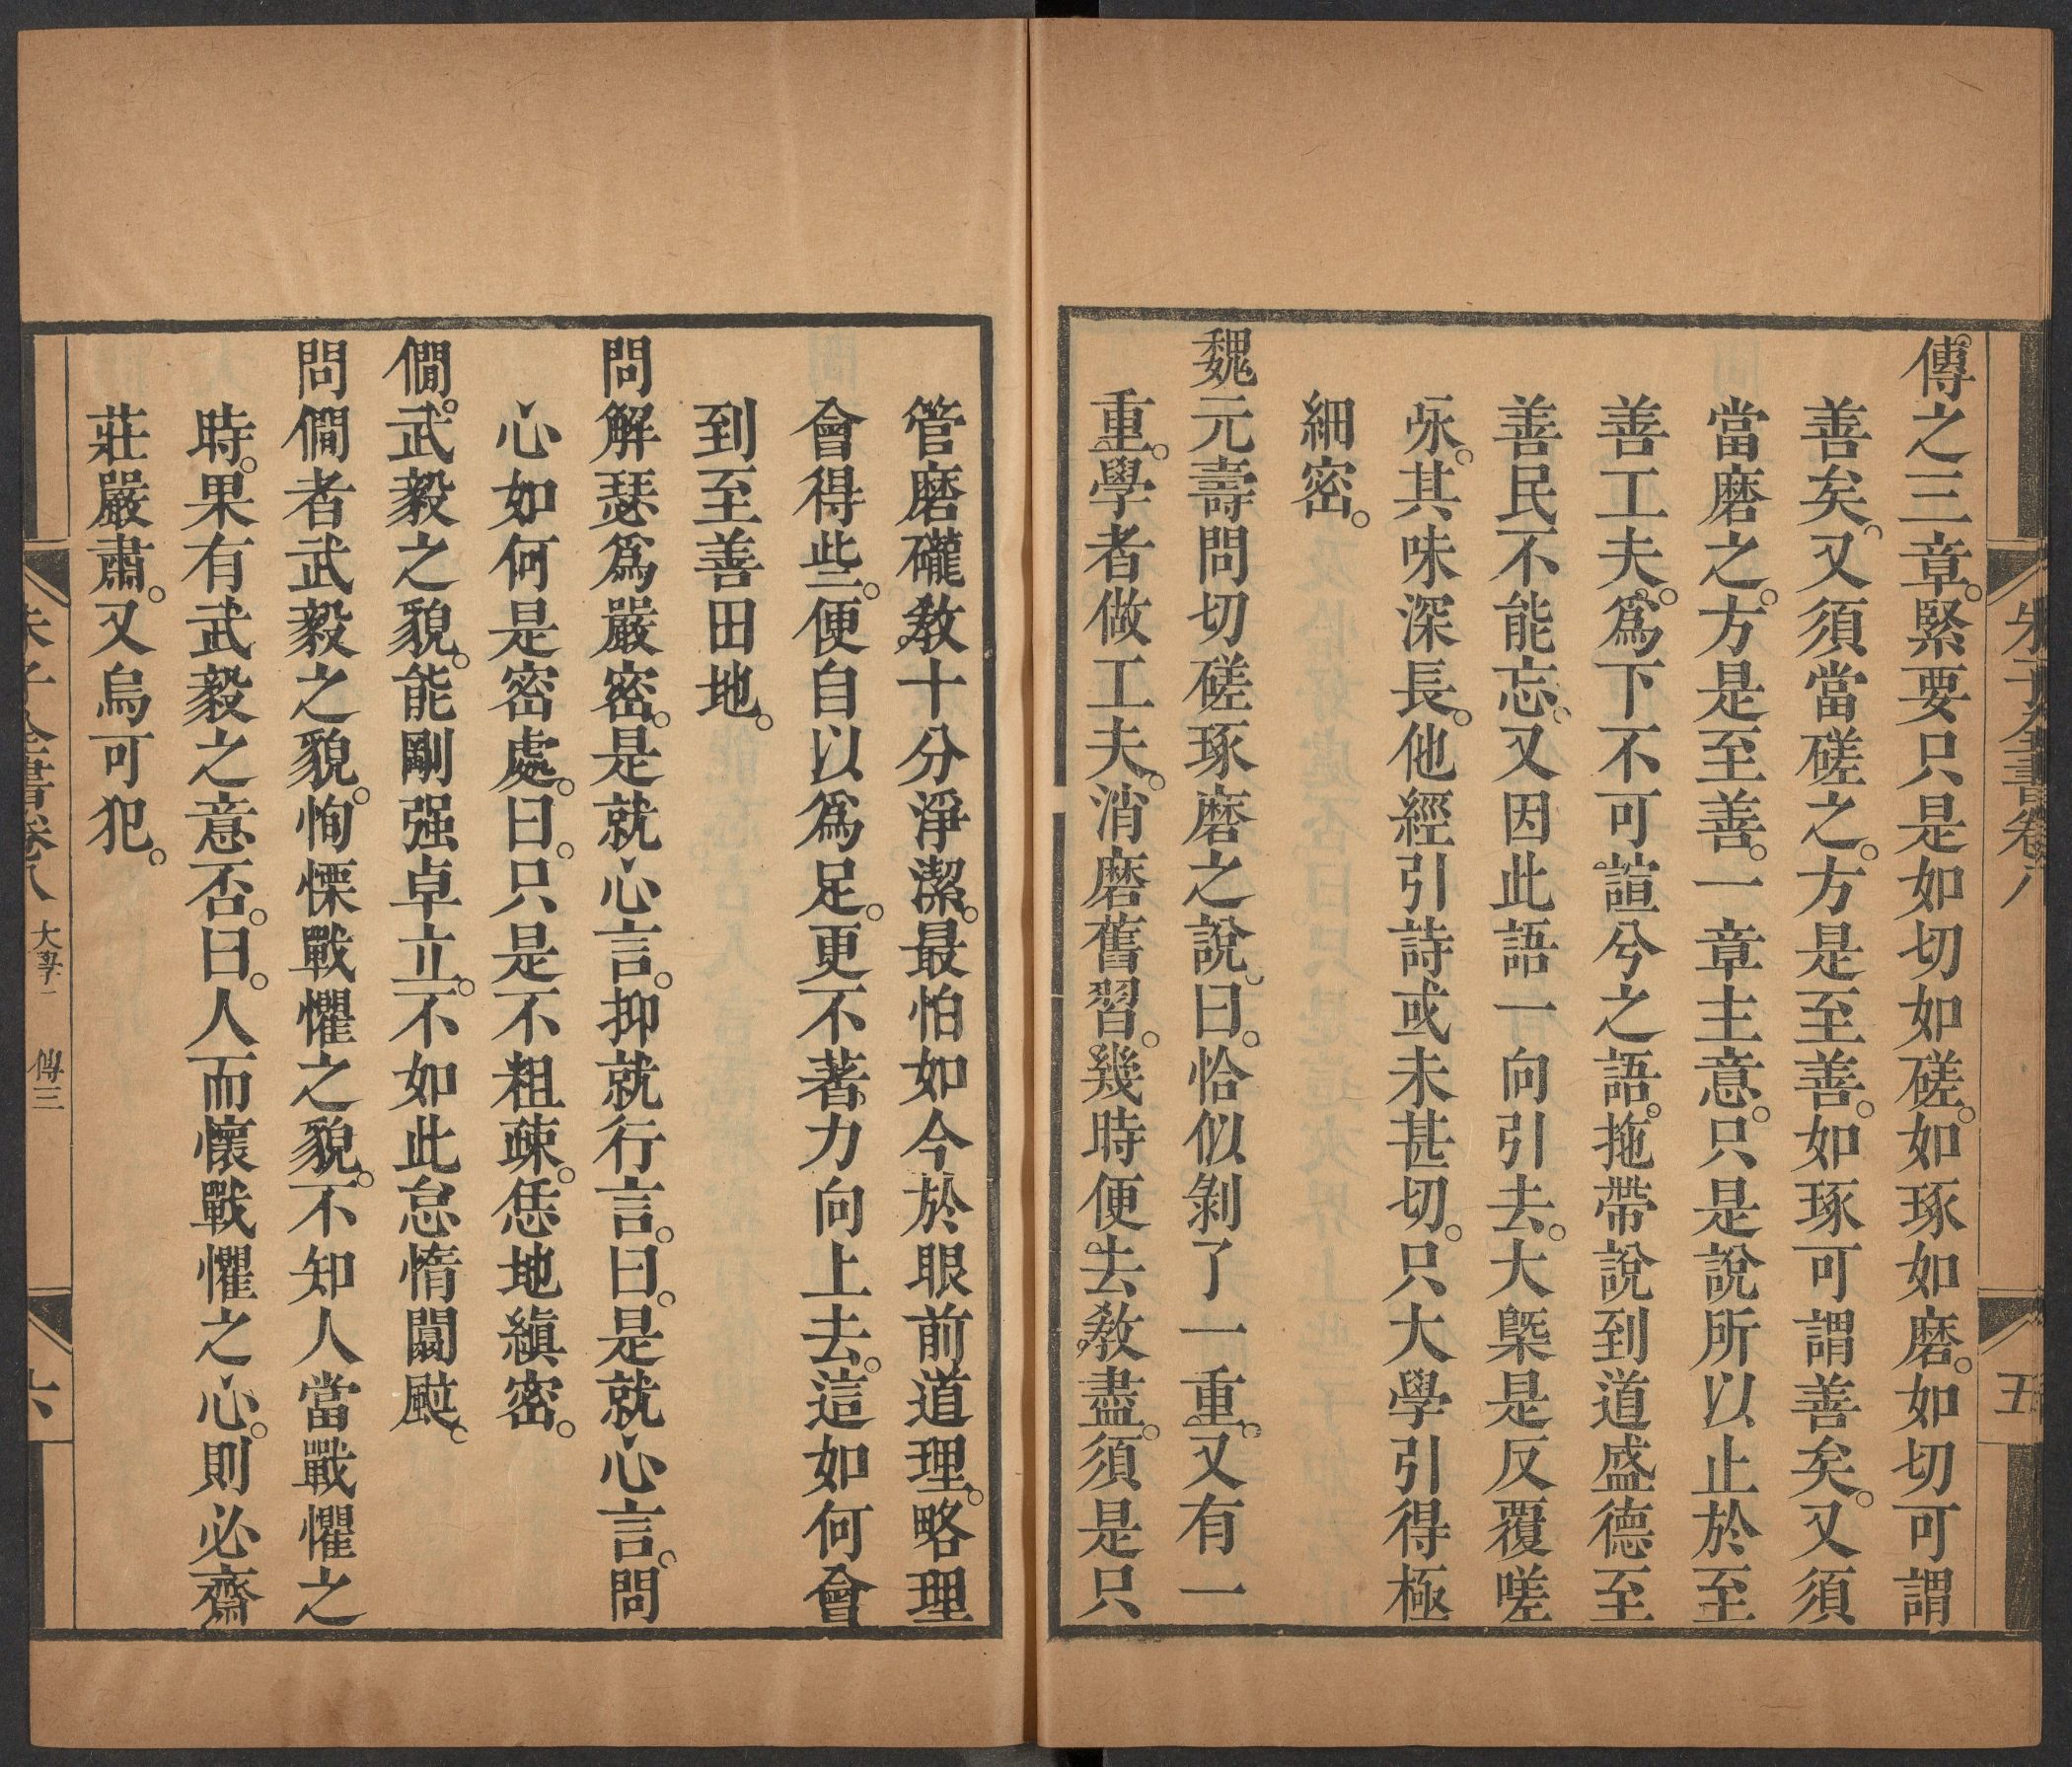 朱子全書卷八
五
傳之三章。緊要只是如切如磋。如琢如磨。如切可謂
善矣。又須當磋之。方是至善。如琢可謂善矣。又須
當磨之。方是至善。一章主意。只是說所以止於至
善工夫。爲下不可諠兮之語。拖帶說到道盛德至
善民不能忘。又因此語一向引去。大槩是反覆嗟
咏。其味深長。他經引詩或未甚切。只大學引得極
細密。
魏元壽問切磋琢磨之說。曰。恰似剝了一重。又有一
重。學者做工夫。消磨舊習。幾時便去敎盡。須是只
管磨礲敎十分淨潔。最怕如今於眼前道理。略理
會得些。便自以爲足。更不著力向上去。這如何會
到至善田地。
問解瑟爲嚴密。是就心言。抑就行言。曰。是就心言。問
心如何是密處。曰。只是不粗疎。恁地縝密。
僩。武毅之貌。能剛强卓立。不如此怠惰闒颯。
問僩者武毅之貌。恂慄戰懼之貌。不知人當戰懼之
時。果有武毅之意否。曰。人而懷戰懼之心。則必齋
莊嚴肅。又烏可犯。
朱子全書卷八 大學一 傳三
六